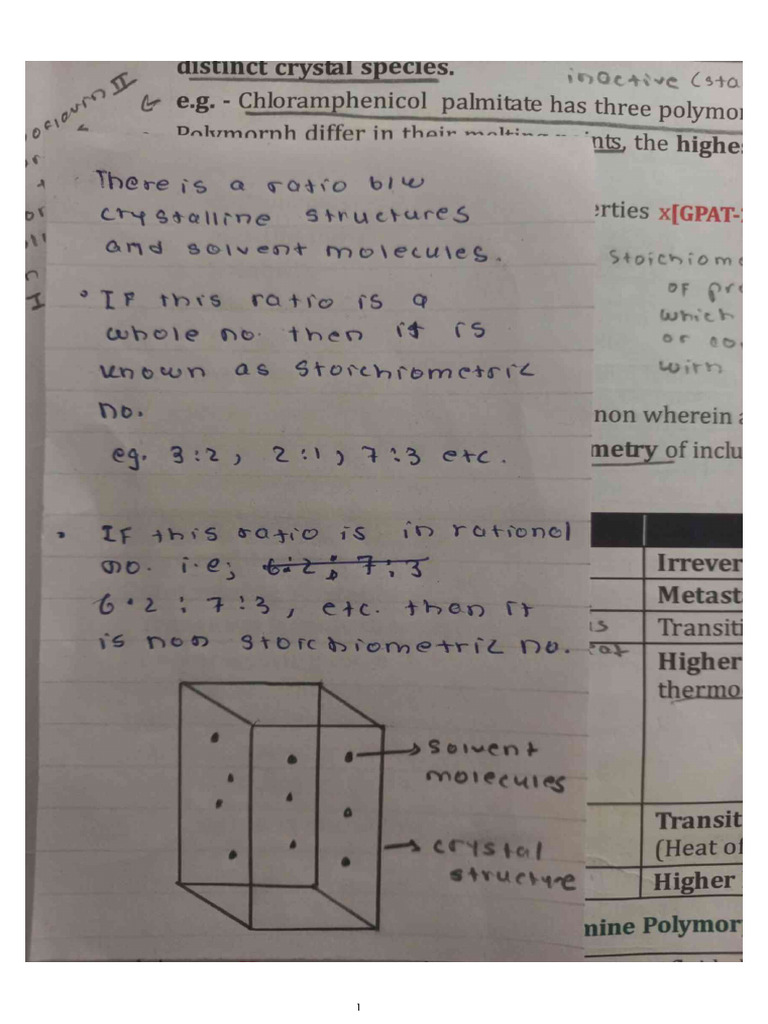 distinct crystal species.
inactive (sta
e.g. - Chloramphenicol palmitate has three polymor
Polymorph differ in their melting points, the highe
There is a ratio b/w
crystalline structures
and solvent molecules.
• If this ratio is a
whole no. then it is
known as stoichiometric
no.
eg. 3:2, 2:1, 7:3 etc.
• If this ratio is in rational
no. i.e; 6.2 : 7:3
6.2 : 7:3, etc. then it
is non stoichiometric no.
solvent
molecules
crystal
structure
erties x[GPAT-
Stoichiom
of pr
which
or co
with
non wherein a
metry of inclu
Irrever
Metast
Transiti
Higher
thermo
Transit
(Heat of
Higher
mine Polymor
١